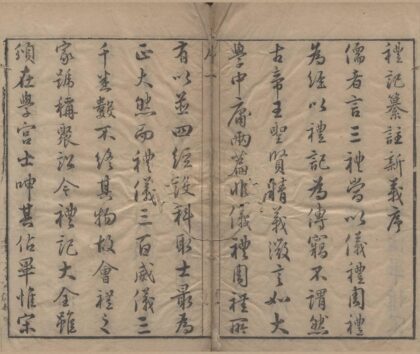 禮記纂註新義序
儒者言三禮當以儀禮周禮
為經以禮記為傳竊不謂然
古帝王聖賢精義微言如大
學中庸兩篇非儀禮周禮所
有以並四經設科取士最為
正大然而禮儀三百威儀三
千巻數不終其物故會禮之
家號稱聚訟今禮記大全雖
頒在學宮士呻其佔畢惟宋